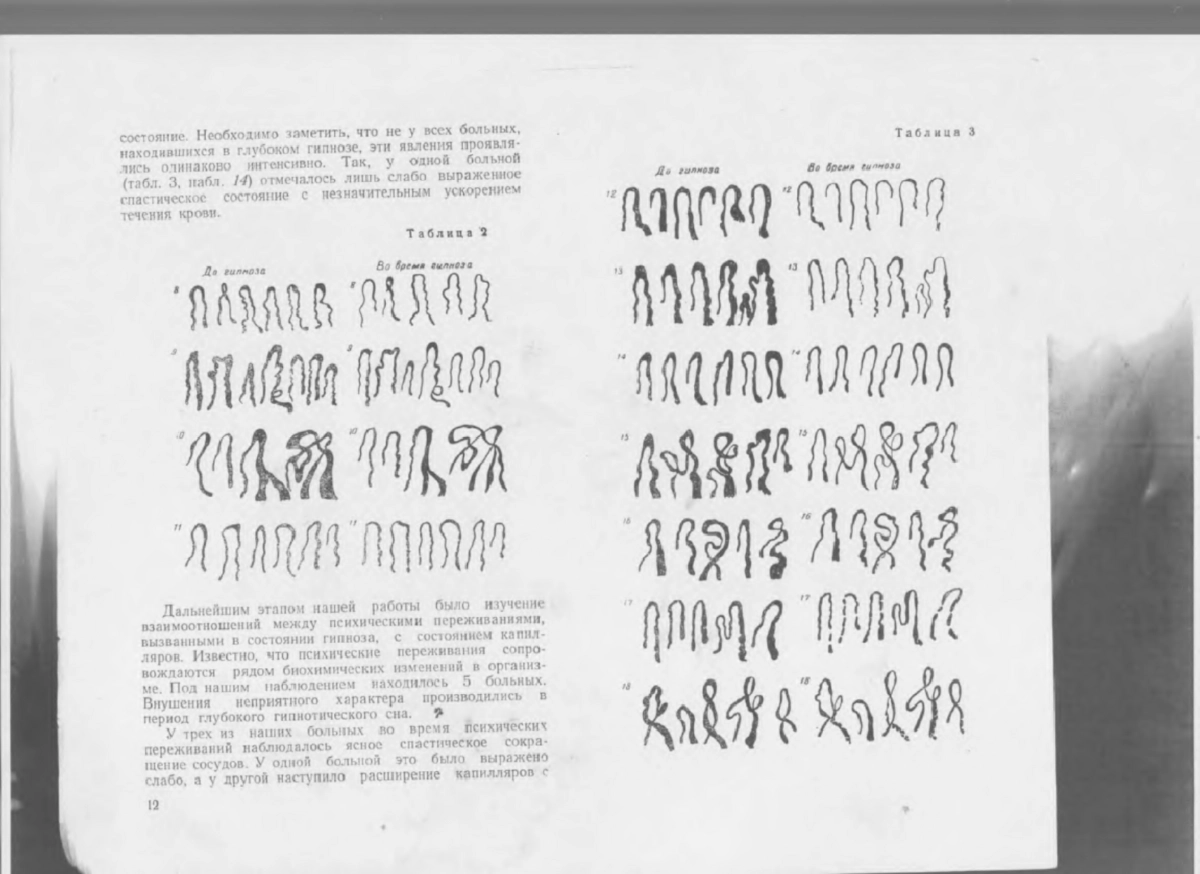 состояние. Необходимо заметить, что не у всех больных,
находившихся в глубоком гипнозе, эти явления проявля-
лись одинаково интенсивно. Так, у одной больной
(табл. 3, набл. 14) отмечалось лишь слабо выраженное
спастическое состояние с незначительным ускорением
течения крови.
Таблица 2
До гипноза
Во время гипноза
8
8
9
9
10
10
11
11
Дальнейшим этапом нашей работы было изучение
взаимоотношений между психическими переживаниями,
вызванными в состоянии гипноза, с состоянием капил-
ляров. Известно, что психические переживания сопро-
вождаются рядом биохимических изменений в организ-
ме. Под нашим наблюдением находилось 5 больных.
Внушения неприятного характера производились в
период глубокого гипнотического сна.
У трех из наших больных во время психических
переживаний наблюдалось ясное спастическое сокра-
щение сосудов. У одной больной это было выражено
слабо, а у другой наступило расширение капилляров с
12
Таблица 3
До гипноза
Во время гипноза
12
12
13
13
14
14
15
15
16
16
17
17
18
18